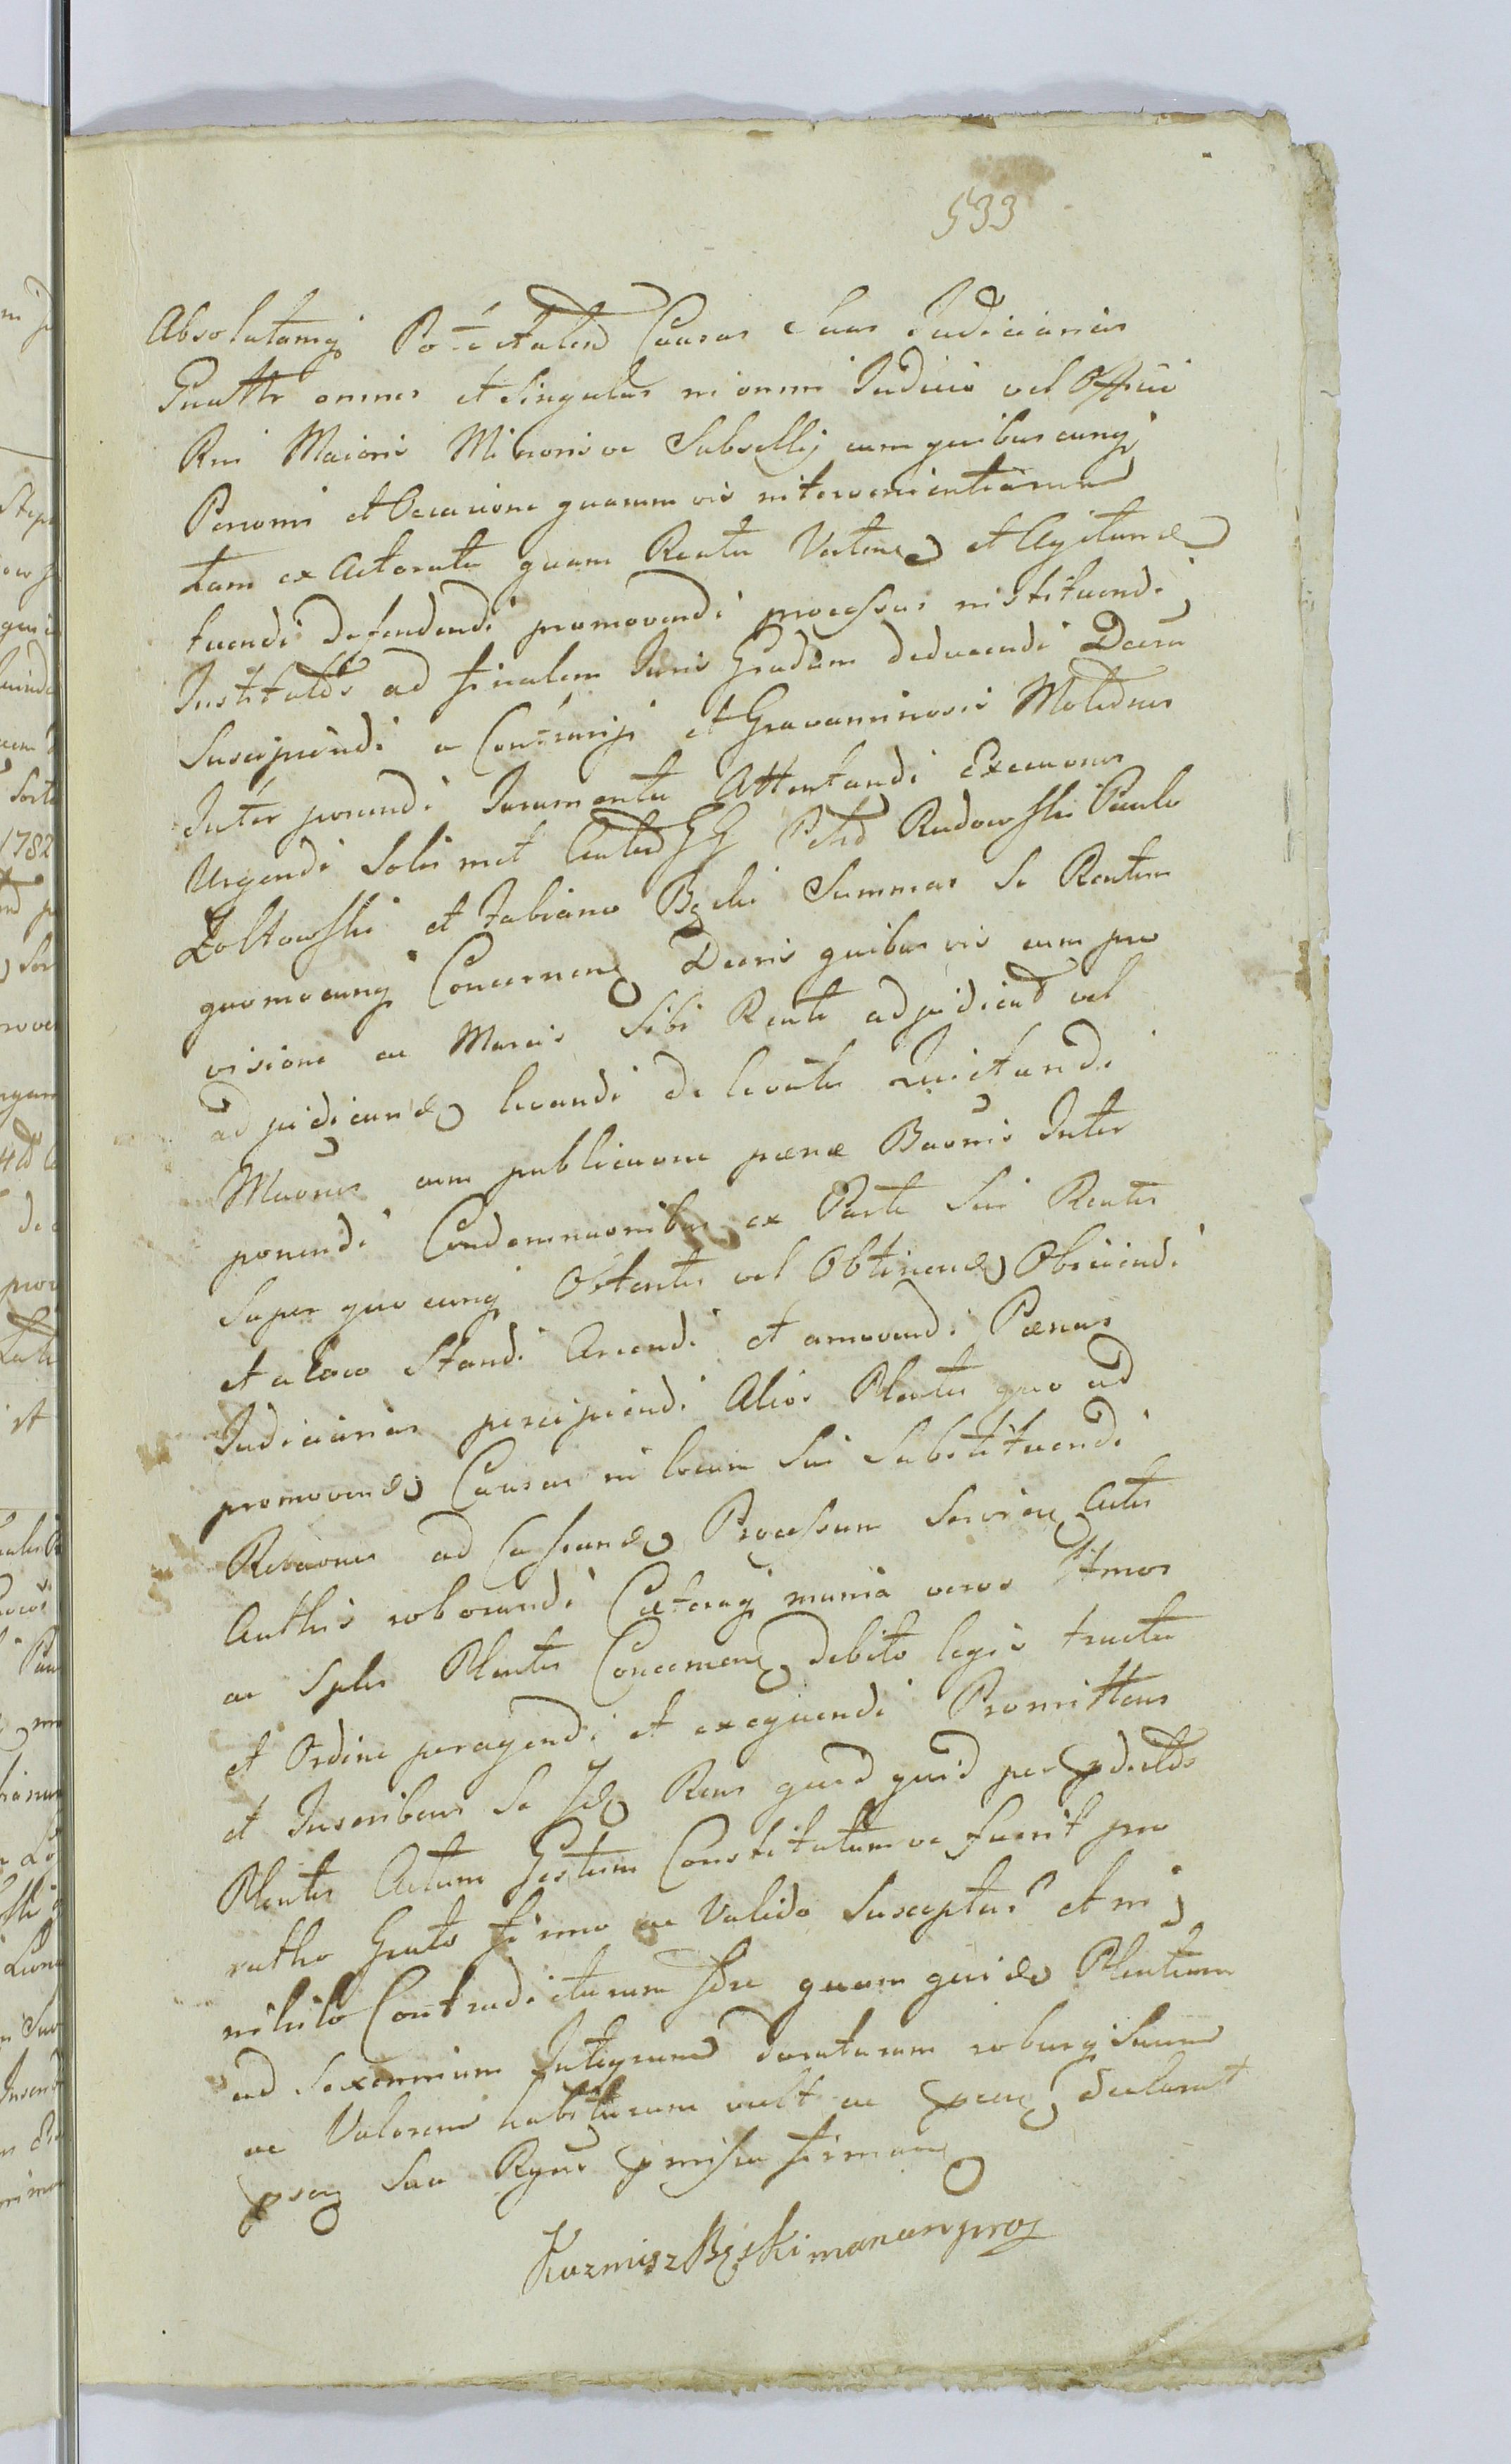 533
Absolutamq Po-ttatem Causas Suas Judiciarias
Gnatter omnes et Singulas in omni Judicio vel Officio
Rni Maioris Minorisve Subsellij cum quibuscunq
Personis et Occasione quarumvis intervenientiarum
tam ex Actoratu quam Reatu Verten et Agitand
tuendi defendendi promovendi processus instituendi
Institutos ad finalem Juris Gradum deducendi Decreta
Suscipiendi a Contrarijs et Gravaminosis Motiones
Interponendi Juramenta Attentandi Executiones
Urgendi Solis met GG Petro Rudowski Paulo
Zoltowski et Fabiano Bęski Summas Se Rentem
quomocunq Concernen Decris quibusvis cum pro
visione ac Marcis Sibi Renti adjudicat vel
adjudicand levandi de levatis Quietandi
Maones cum publicaone pænæ Baonis Inter
ponendi Condemnaonibus ex Parte Sui Rentis
Super quocunq Obtentis vel Obtinend Obviandi
et a loco Standi Arcendi et amovendi Pænas
Judiciarias percipiendi Alios Plentes quo ad
promovend Causas in locum Sui Substituendi
Rotaones ad Cassand Processum Servien Actis
Authis roborandi Cæteraq munia veros Ltmos
ac Sples Plentes Concernen debito legis tractu
et Ordine peragendi et exequendi Promittens
et Inscribens Se Id Rens quid quid per pdictos
Plentes Actum Gestum Constitutumve fuerit pro
ratho Grato firmo ac Valido Suscepturu et in
nihilo Contradicturum fore quam quid Plentiam
ad Sexennium Integrum duraturam roburq Suum
ac Valorem habituram vult ac pten declarat
psenq Sua Rgnis pmissa firman
Kazmisz Bęski manu propr